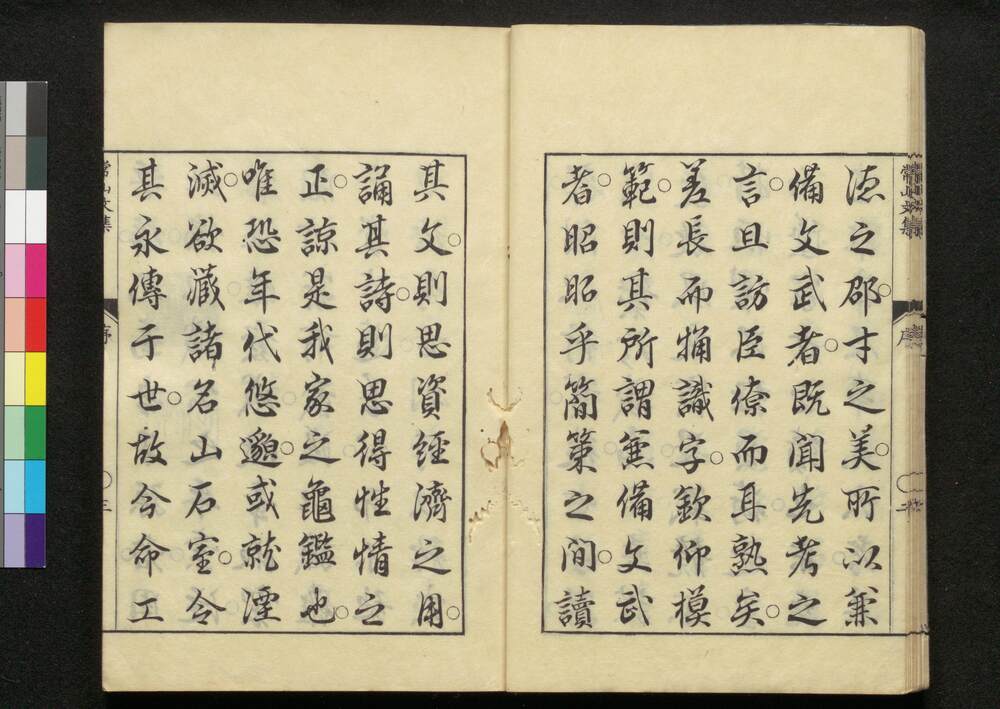 德之邵才之美所以兼
備文武者既聞先考之
言且訪臣僚而耳熟矣
差長而稍識字欽仰模
範則其所謂兼備文武
者昭昭乎簡策之間讀
其文則思資經濟之用
誦其詩則思得性情之
正諒是我家之龜鑑也
唯恐年代悠邈或就湮
滅欲藏諸名山石室令
其永傳于世故今命工
常山文集
序
三